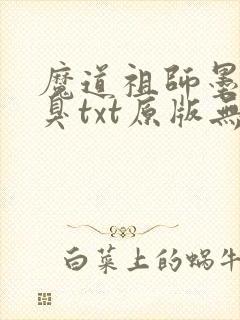 魔道祖師墨
臭txt原版無
白菜上的蜗牛